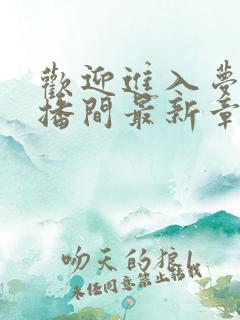 歡迎進入夢
播間最新章
吻天的狼
未經同意禁止轉載